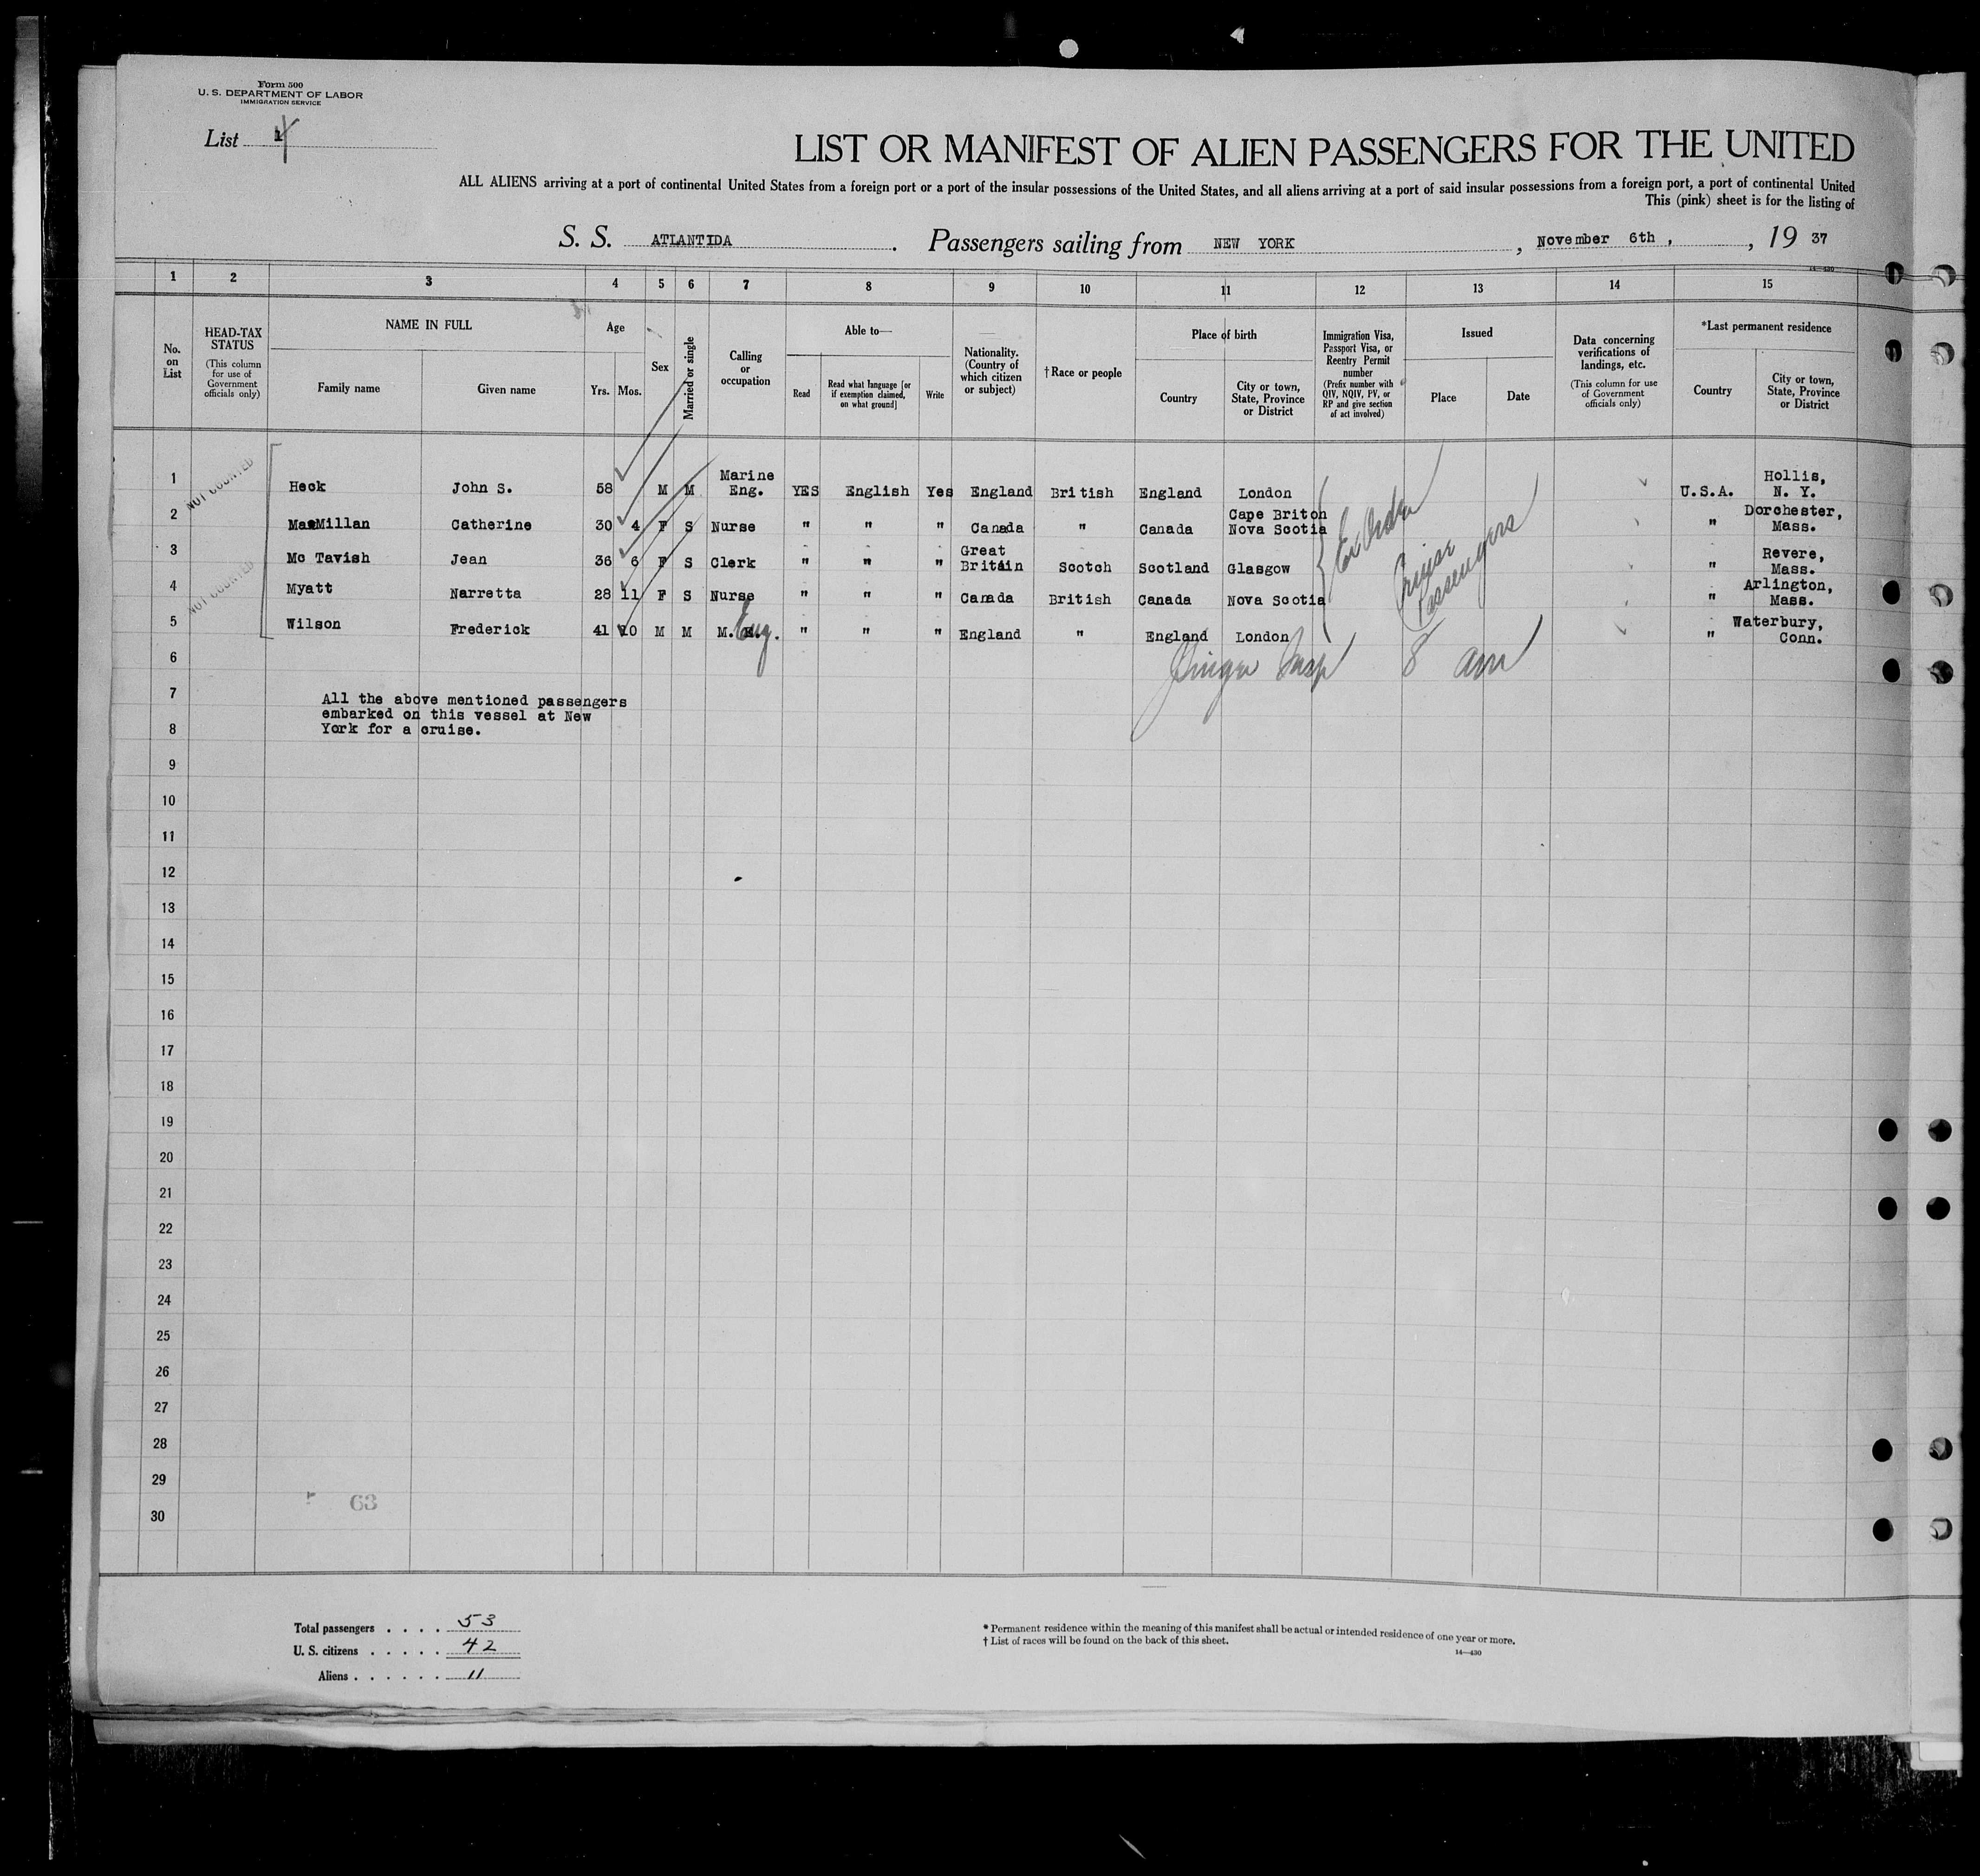 Form 500
U. S. DEPARTMENT OF LABOR
IMMIGRATION SERVICE
List
LIST OR MANIFEST OF ALIEN PASSENGERS FOR THE UNITED
ALL ALIENS arriving at a port of continental United States from a foreign port or a port of the insular possessions of the United States, and all aliens arriving at a port of said insular possessions from a foreign port, a port of continental United
This (pink) sheet is for the listing of
S. S. ATLANTIDA. Passengers sailing from NEW YORK, November 6th, , 19 37
14—430
1 2 3 4 5 6 7 8 9 10 11 12 13 14 15
No. on List
HEAD-TAX STATUS
(This column for use of Government officials only)
NAME IN FULL
Family name Given name
Age
Yrs. Mos.
Sex
Married or single
Calling or occupation
Able to—
Read Read what language [or if exemption claimed, on what ground] Write
Nationality. (Country of which citizen or subject)
†Race or people
Place of birth
Country City or town, State, Province or District
Immigration Visa, Passport Visa, or Reentry Permit number
(Prefix number with QIV, NQIV, PV, or RP and give section of act involved)
Issued
Place Date
Data concerning verifications of landings, etc.
(This column for use of Government officials only)
*Last permanent residence
Country City or town, State, Province or District
NOT COUNTED
1 Heck John S. 58 M M Marine Eng. YES English Yes England British England London U.S.A. Hollis, N. Y.
2 MacMillan Catherine 30 4 F S Nurse " " " Canada " Canada Cape Briton Nova Scotia " Dorchester, Mass.
3 Mc Tavish Jean 36 6 F S Clerk " " " Great Britain Scotch Scotland Glasgow " Revere, Mass.
NOT COUNTED
4 Myatt Narretta 28 11 F S Nurse " " " Canada British Canada Nova Scotia " Arlington, Mass.
5 Wilson Frederick 41 10 M M M. Eng. " " " England " England London " Waterbury, Conn.
Cruise
Passengers
8 am
6
7
All the above mentioned passengers
embarked on this vessel at New
York for a cruise.
8
9
10
11
12
13
14
15
16
17
18
19
20
21
22
23
24
25
26
27
28
29
63
30
Total passengers . . . . 53
U. S. citizens . . . . . 42
Aliens . . . . . . 11
* Permanent residence within the meaning of this manifest shall be actual or intended residence of one year or more.
† List of races will be found on the back of this sheet.
14—430